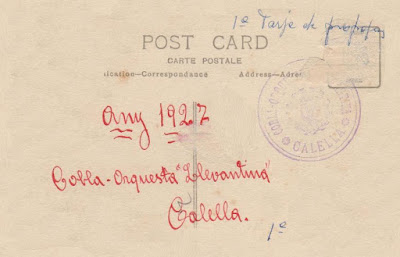 1ª Tarje de propopa
POST CARD
CARTE POSTALE
ication—Correspondance Address—Adre
Any 1927
Cobla-Orquesta "Llevantina"
Calella.
1ª
CALELLA